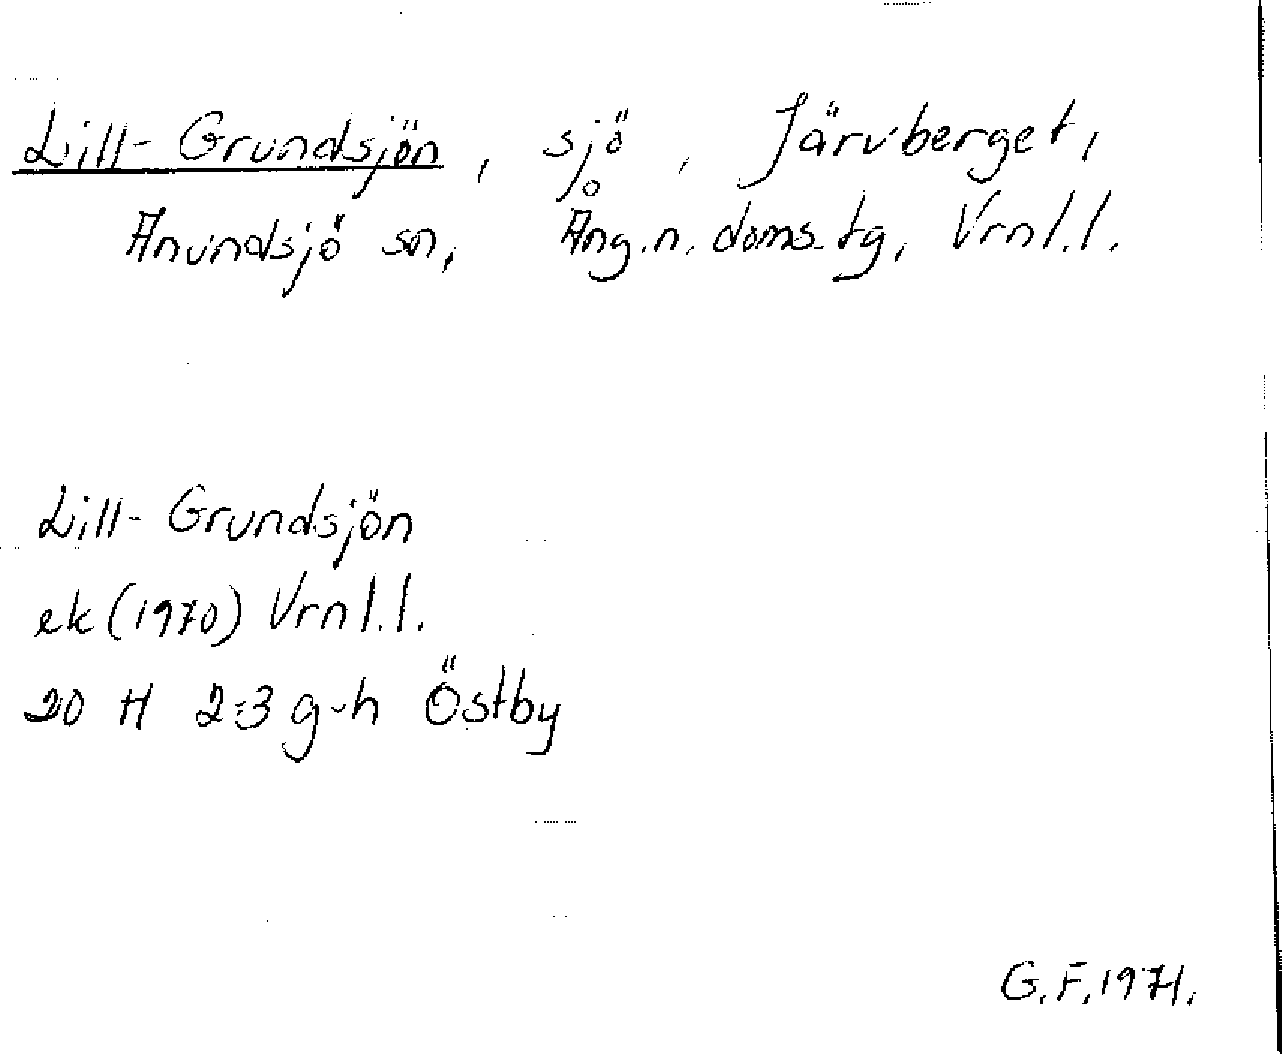 Lill-Grundsjön, sjö, Järvberget,
Anundsjö sn, Ång.n. doms.tg, Vrnl.l.
Lill-Grundsjön
ek (1970) Vrnl.l.
20 H 2-3 g-h Östby
G.F. 1971.